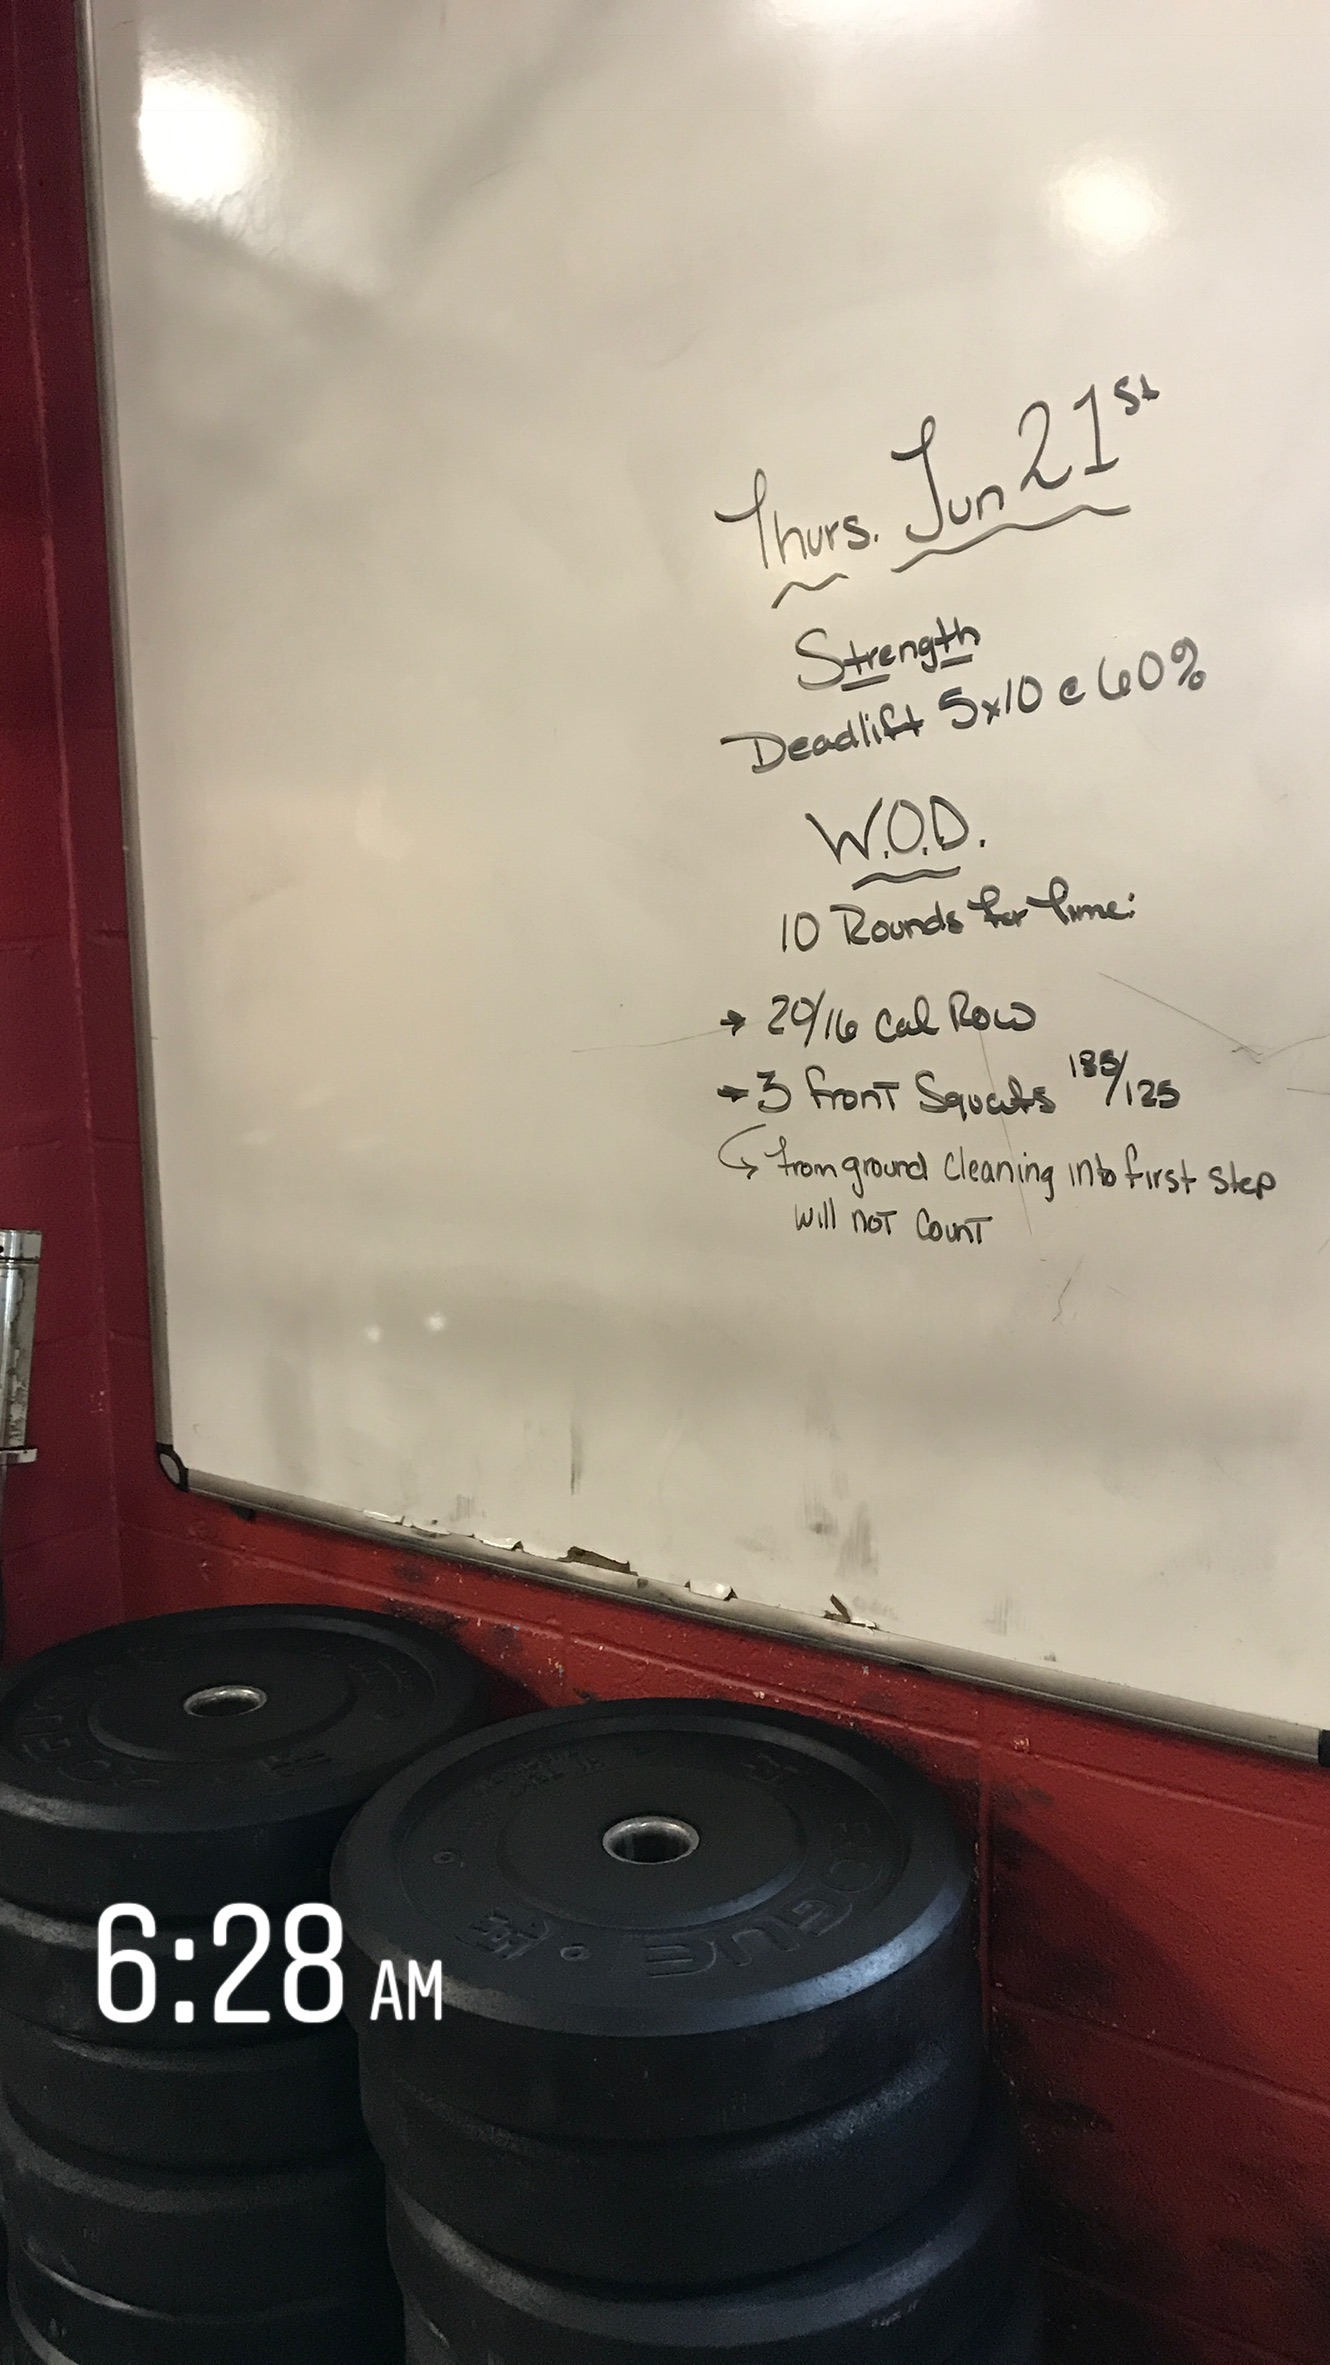 Thurs. Jun 21st
Strength
Deadlift 5x10 @ 60%
W.O.D.
10 Rounds for Time:
→ 20/16 Cal Row
→ 3 Front Squats 185/125
from ground cleaning into first step
will not count
ROGUE
6:28 AM